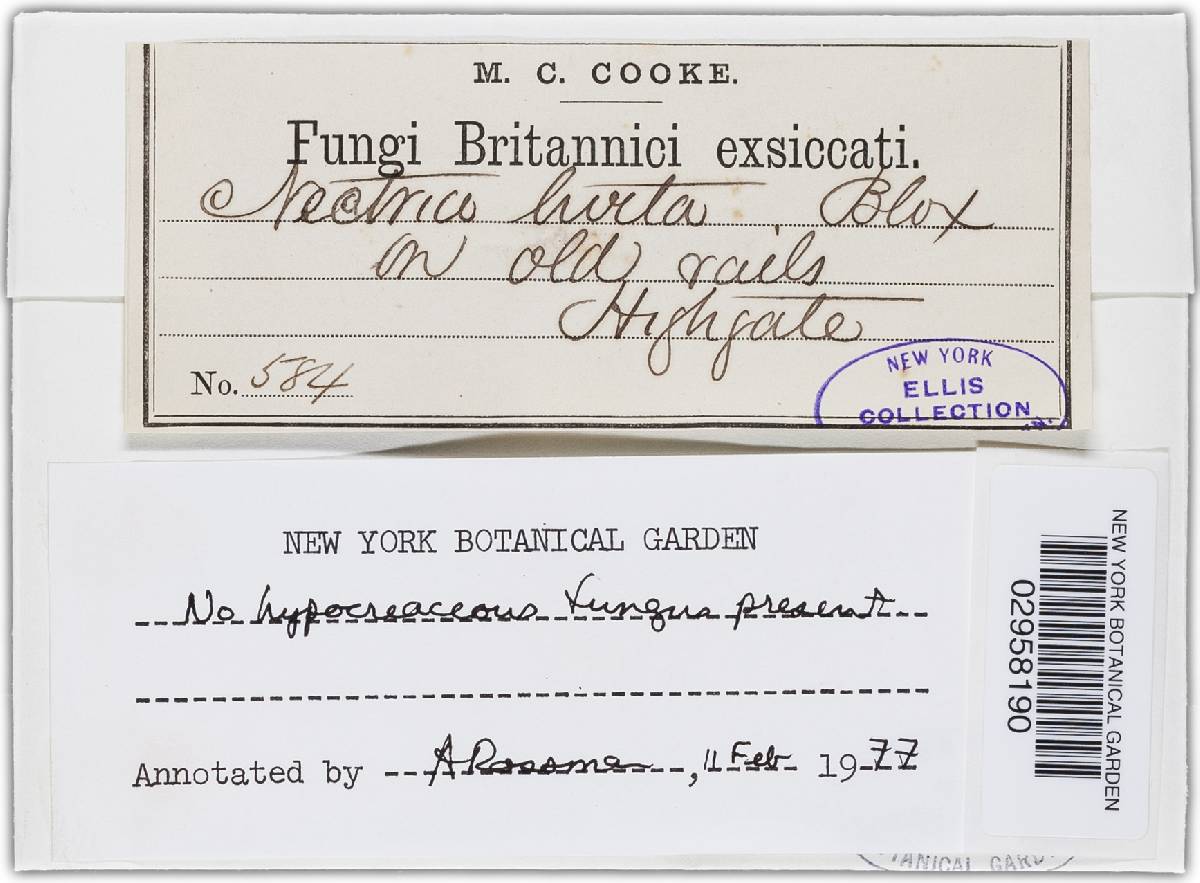 M. C. COOKE.
Fungi Britannici exsiccati.
Nectria hirta. Blox
on old rails
Highgate
No. 584
NEW YORK
ELLIS
COLLECTION
NEW YORK BOTANICAL GARDEN
No hypocreaceous fungus present
Annotated by A Rossman, 11 Feb 1977
NEW YORK BOTANICAL GARDEN
02958190
TANICAL GARD